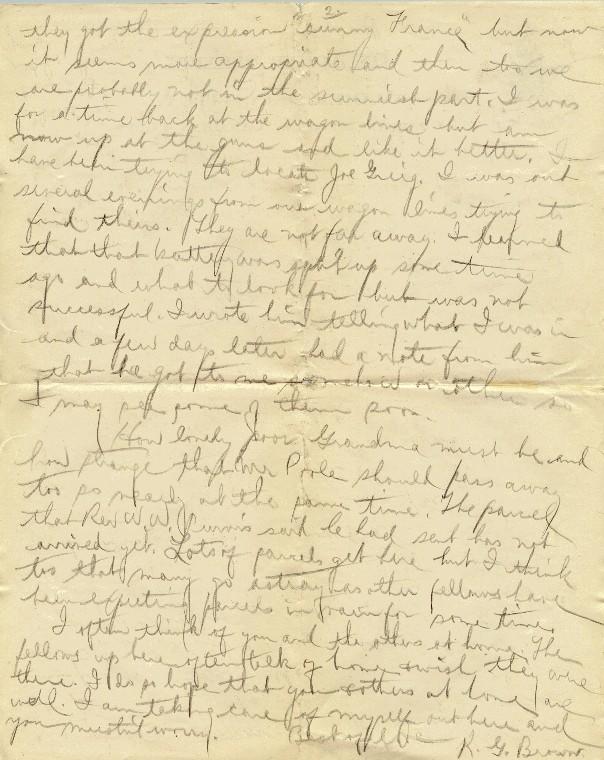 2.
they got the expression "sunny France" but now
it seems more appropriate and then too we
are probably not in the sunniest part. I was
for a time back at the wagon lines but am
now up at the guns and like it better. I
have been trying to locate Joe Greig. I was out
several evenings from our wagon lines trying to
find theirs. They are not far away. I learned
that that battery was split up some time
ago and what to look for but was not
successful. I wrote him telling what I was in
and a few days later had a note from him
that he got to me somehow or other so
I may see some of them soon.
How lonely poor Grandma must be and
how strange that Mr Poole should pass away
too so nearly at the same time. The parcel
that Rev. W. W. said he had sent has not
arrived yet. Lots of parcels get here but I think
too that many go astray as other fellows have
been expecting parcels in vain for some time.
I often think of you and the others at home. The
fellows up here often talk of home & wish they were
there. I do so hope that you & others at home are
well. I am taking care of myself out here and
you mustn't worry.
Best of love
R. G. Brown.